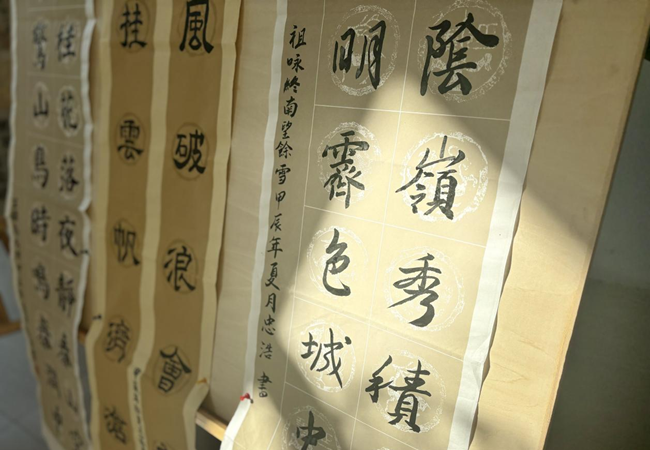 陰嶺秀積
明霽色城中
祖咏終南望餘雪甲辰年夏月忠浩書
風破浪會
挂雲帆濟滄
桂花落夜靜春山空
驚山鳥時鳴春澗中